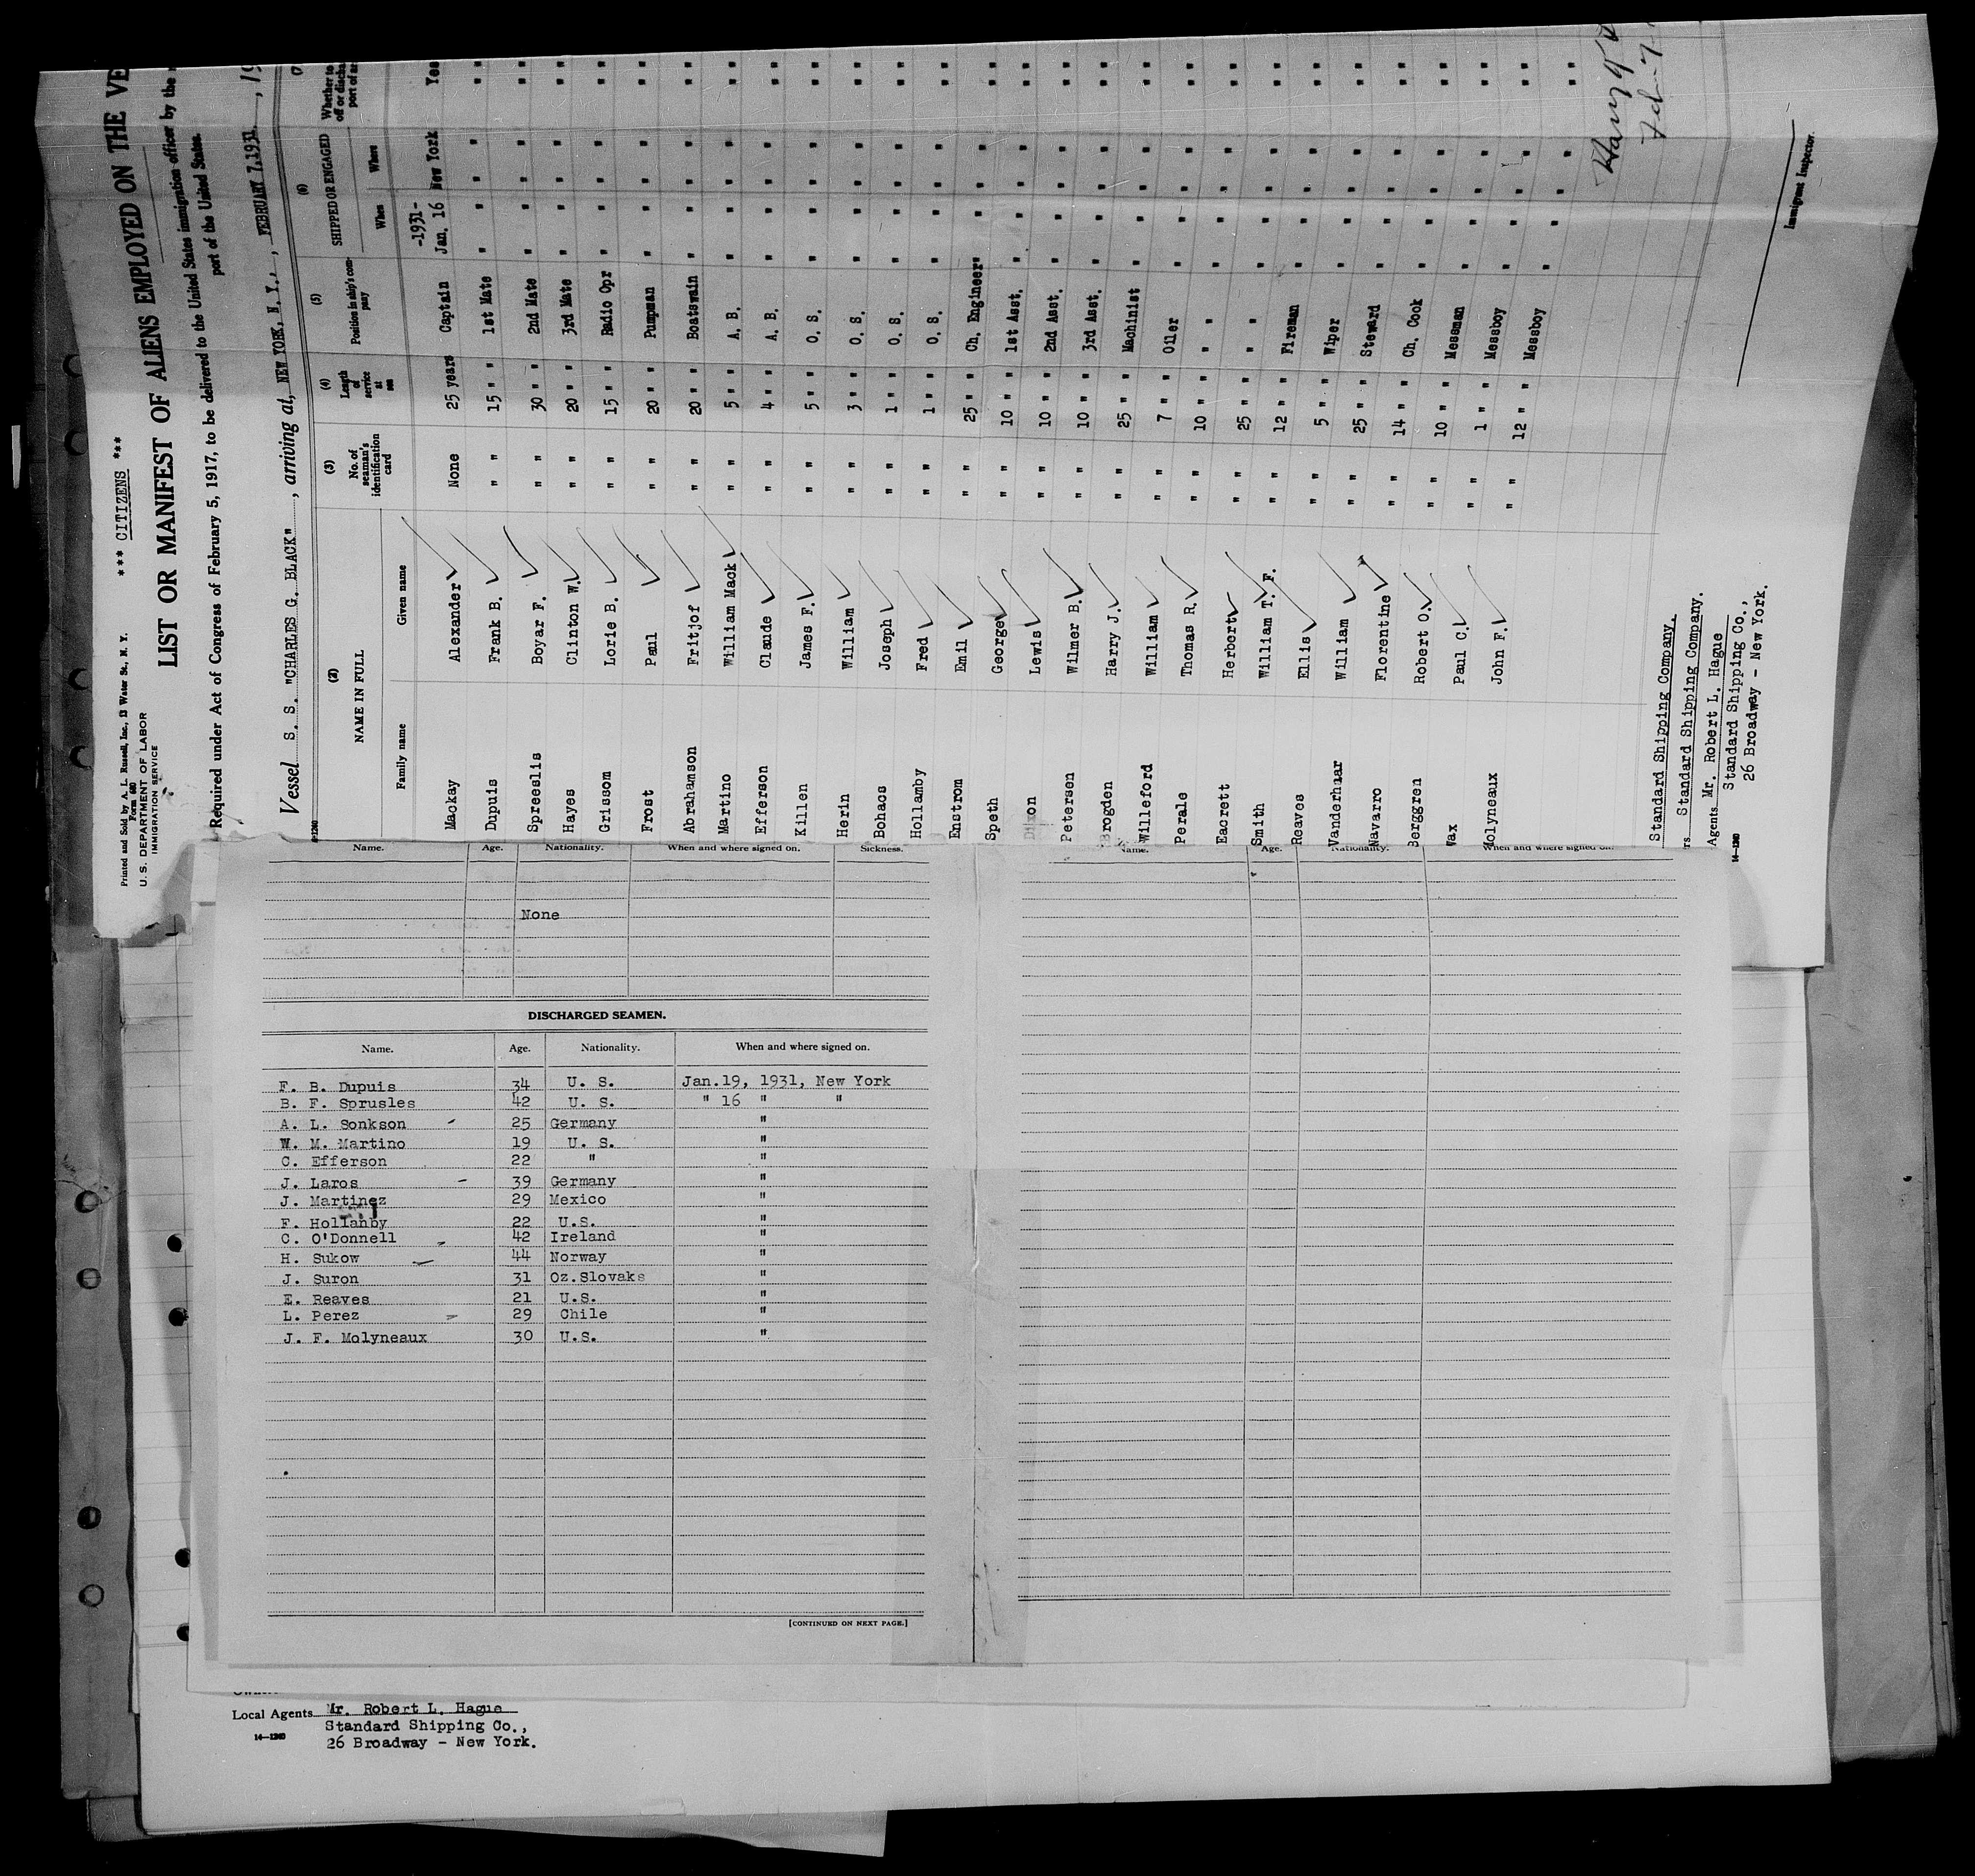 Printed and Sold by A. L. Russell, Inc., 13 Water St., N. Y.
Form 680
U. S. DEPARTMENT OF LABOR
IMMIGRATION SERVICE
*** CITIZENS ***
LIST OR MANIFEST OF ALIENS EMPLOYED ON THE VE
Required under Act of Congress of February 5, 1917, to be delivered to the United States immigration officer by the
port of the United States.
Vessel S. S. "CHARLES G. BLACK", arriving at, NEW YORK, N. Y., , FEBRUARY 7, 1931, 19
(2) NAME IN FULL Family name Given name (3) No. of seaman's identification card (4) Length of service at sea (5) Position in ship's company (6) SHIPPED OR ENGAGED When Where Whether to off or discha port of ar
-1931-
Mackay Alexander None 25 years Captain Jan. 16 New York Yes
Dupuis Frank B. " " 15 " " 1st Mate " " " " " "
Spreeslis Boyar F. " " 30 " " 2nd Mate " " " " " "
Hayes Clinton W. " " 20 " " 3rd Mate " " " " " "
Grissom Lorie B. " " 15 " " Radio Opr " " " " " "
Frost Paul " " 20 " " Pumpman " " " " " "
Abrahamson Fritjof " " 20 " " Boatswain " " " " " "
Martino William Mack " " 5 " " A. B. " " " " " "
Efferson Claude " " 4 " " A. B. " " " " " "
Killen James F. " " 5 " " O. S. " " " " " "
Herin William " " 3 " " O. S. " " " " " "
Bohacs Joseph " " 1 " " O. S. " " " " " "
Hollamby Fred " " 1 " " O. S. " " " " " "
Enstrom Emil " " 25 " " Ch. Engineer " " " " " "
Speth George " " 10 " " 1st Asst. " " " " " "
Dixon Lewis " " 10 " " 2nd Asst. " " " " " "
Petersen Wilmer B. " " 10 " " 3rd Asst. " " " " " "
Brogden Harry J. " " 25 " " Machinist " " " " " "
Willeford William " " 7 " " Oiler " " " " " "
Perale Thomas R. " " 10 " " " " " " " " "
Eacrett Herbort " " 25 " " " " " " " " "
Smith William T. F. " " 12 " " Fireman " " " " " "
Reaves Ellis " " 5 " " Wiper " " " " " "
Vanderhaar William " " 25 " " Steward " " " " " "
Navarro Florentine " " 14 " " Ch. Cook " " " " " "
Berggren Robert O. " " 10 " " Messman " " " " " "
Wax Paul C. " " 1 " " Messboy " " " " " "
Molyneaux John F. " " 12 " " Messboy " " " " " "
Standard Shipping Company.
rs Standard Shipping Company.
Agents Mr. Robert L. Hague
Standard Shipping Co.,
26 Broadway - New York.
14-1240
Immigrant Inspector.
Name. Age. Nationality. When and where signed on. Sickness.
None
Name. Age. Nationality. When and where signed on.
DISCHARGED SEAMEN.
Name. Age. Nationality. When and where signed on.
F. B. Dupuis 34 U. S. Jan.19, 1931, New York
B. F. Sprusles 42 U. S. " 16 " "
A. L. Sonkson 25 Germany "
W. M. Martino 19 U. S. "
C. Efferson 22 " "
J. Laros 39 Germany "
J. Martinez 29 Mexico "
F. Hollanby 22 U.S. "
C. O'Donnell 42 Ireland "
H. Sukow 44 Norway "
J. Suron 31 Oz.Slovaks "
E. Reaves 21 U.S. "
L. Perez 29 Chile "
J. F. Molyneaux 30 U.S. "
[CONTINUED ON NEXT PAGE.]
Local Agents Mr. Robert L. Hague
Standard Shipping Co.,
26 Broadway - New York.
14-1240